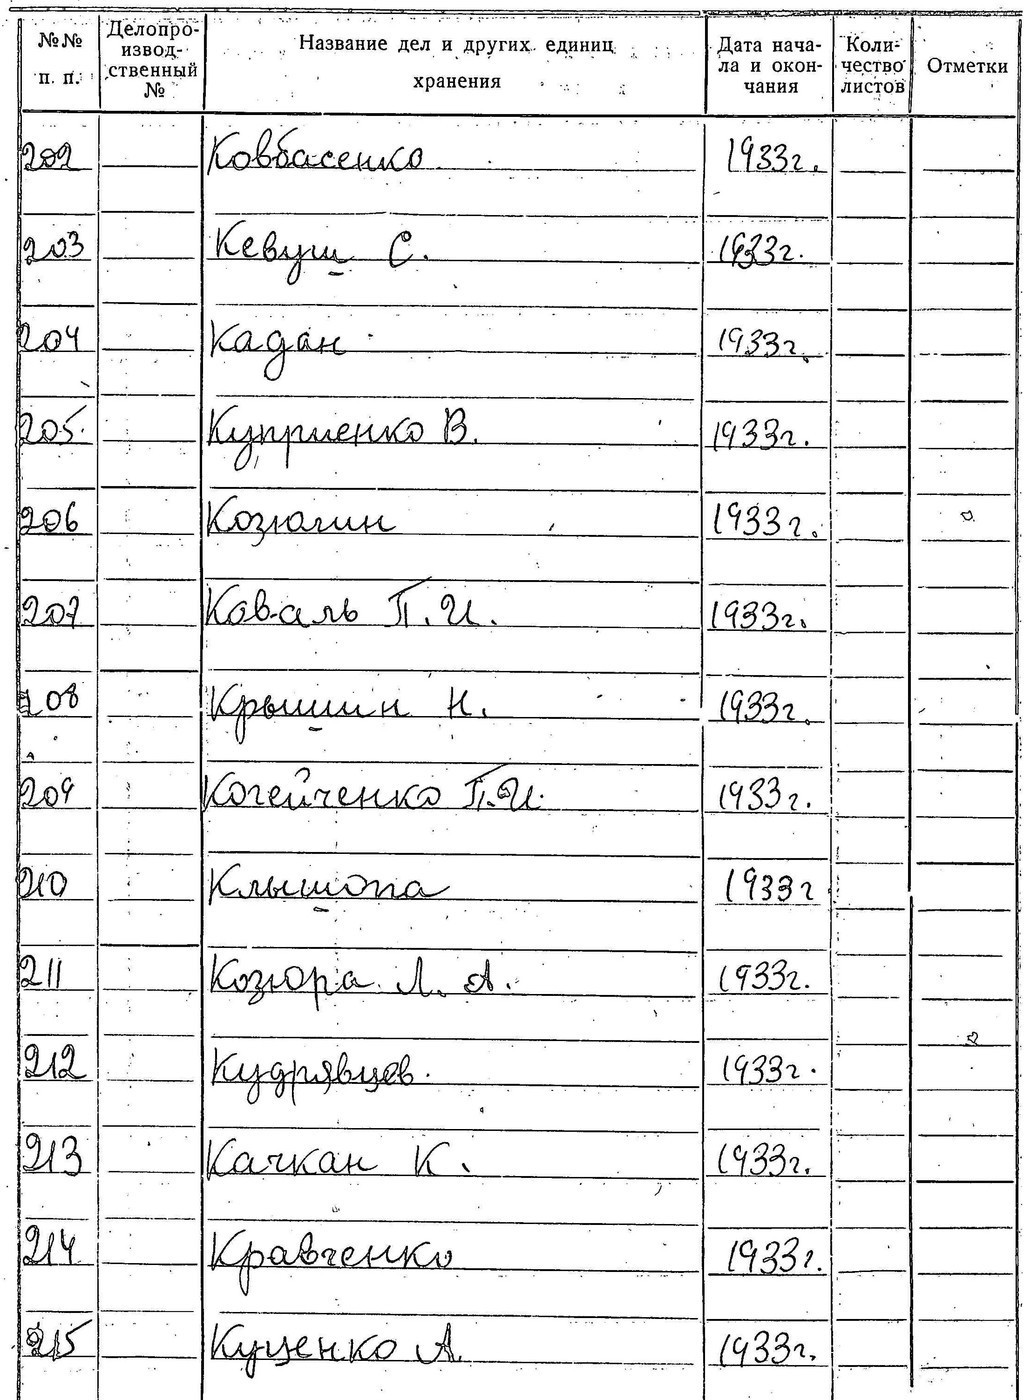 №№ п. п. Делопро-изводственный № Название дел и других единиц хранения Дата начала и окончания Количество листов Отметки
202 Ковбасенко 1933г.
203 Кевуш С. 1933г.
204 Кадан 1933г.
205. Куприенко В. 1933г.
206 Козюлин 1933г.
207 Коваль П. И. 1933г.
208 Крышин Н. 1933г.
209 Когейченко П.И. 1933г.
210 Клышопа 1933г
211 Козюра Л. А. 1933г.
212 Кудрявцев. 1933г.
213 Качкан К. 1933г.
214 Кравченко 1933г.
215 Куценко А. 1933г.